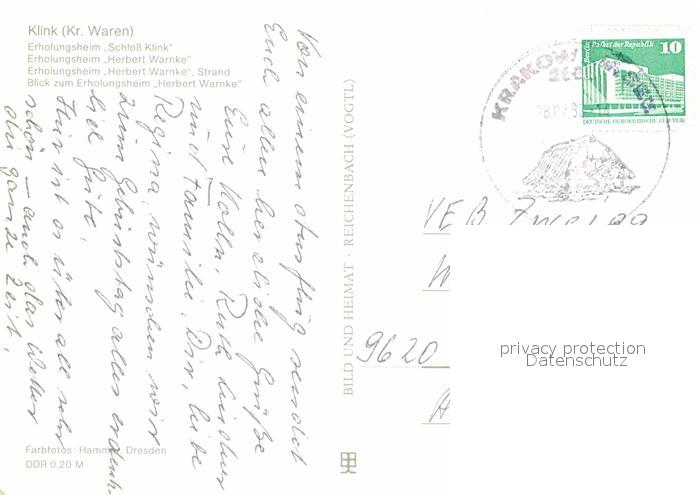 Klink (Kr. Waren)
Erholungsheim „Schloß Klink"
Erholungsheim „Herbert Warnke"
Erholungsheim „Herbert Warnke", Strand
Blick zum Erholungsheim „Herbert Warnke"
Von einem Ausflug sendet
Euch allen herzliche Grüße
Eure Kolln. Ruth
und Familie. Dir, liebe
Regina, wünschen wir
zum Geburtstag alles erdenk-
lich Gute.
Hier ist es überall sehr
schön – auch das Wetter
die ganze Zeit.
Farbfotos: Hammer, Dresden
DDR 0,20 M
BILD UND HEIMAT · REICHENBACH (VOGTL)
KRAKOW
Berlin, Palast der Republik
10
DEUTSCHE DEMOKRATISCHE REPUBLIK
VEB
W
9620
privacy protection
Datenschutz